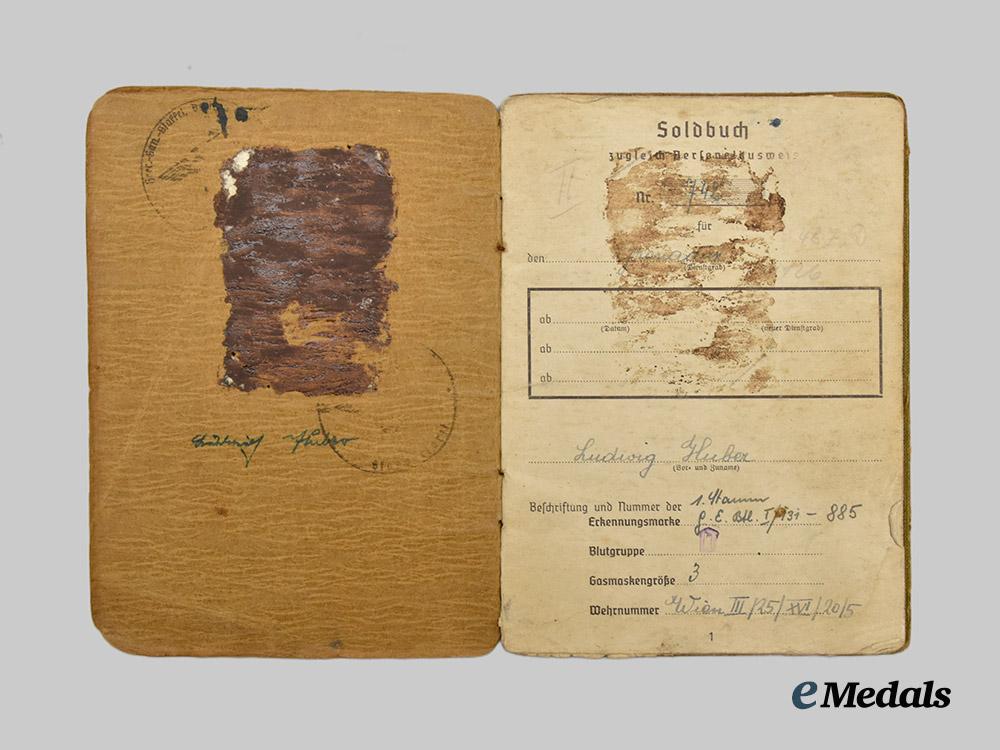 Ludwig Huber
Soldbuch
zugleich Personalausweis
Nr. 742
für
den Grenadier
(Dienstgrad)
ab
(Datum) (neuer Dienstgrad)
ab
ab
Ludwig Huber
(Vor- und Zuname)
Beschriftung und Nummer der
Erkennungsmarke
1. Stamm
J. E. Btl. I/131 - 885
Blutgruppe
Gasmaskengröße 3
Wehrnummer Wien III/25/XVI/20/5
1
eMedals